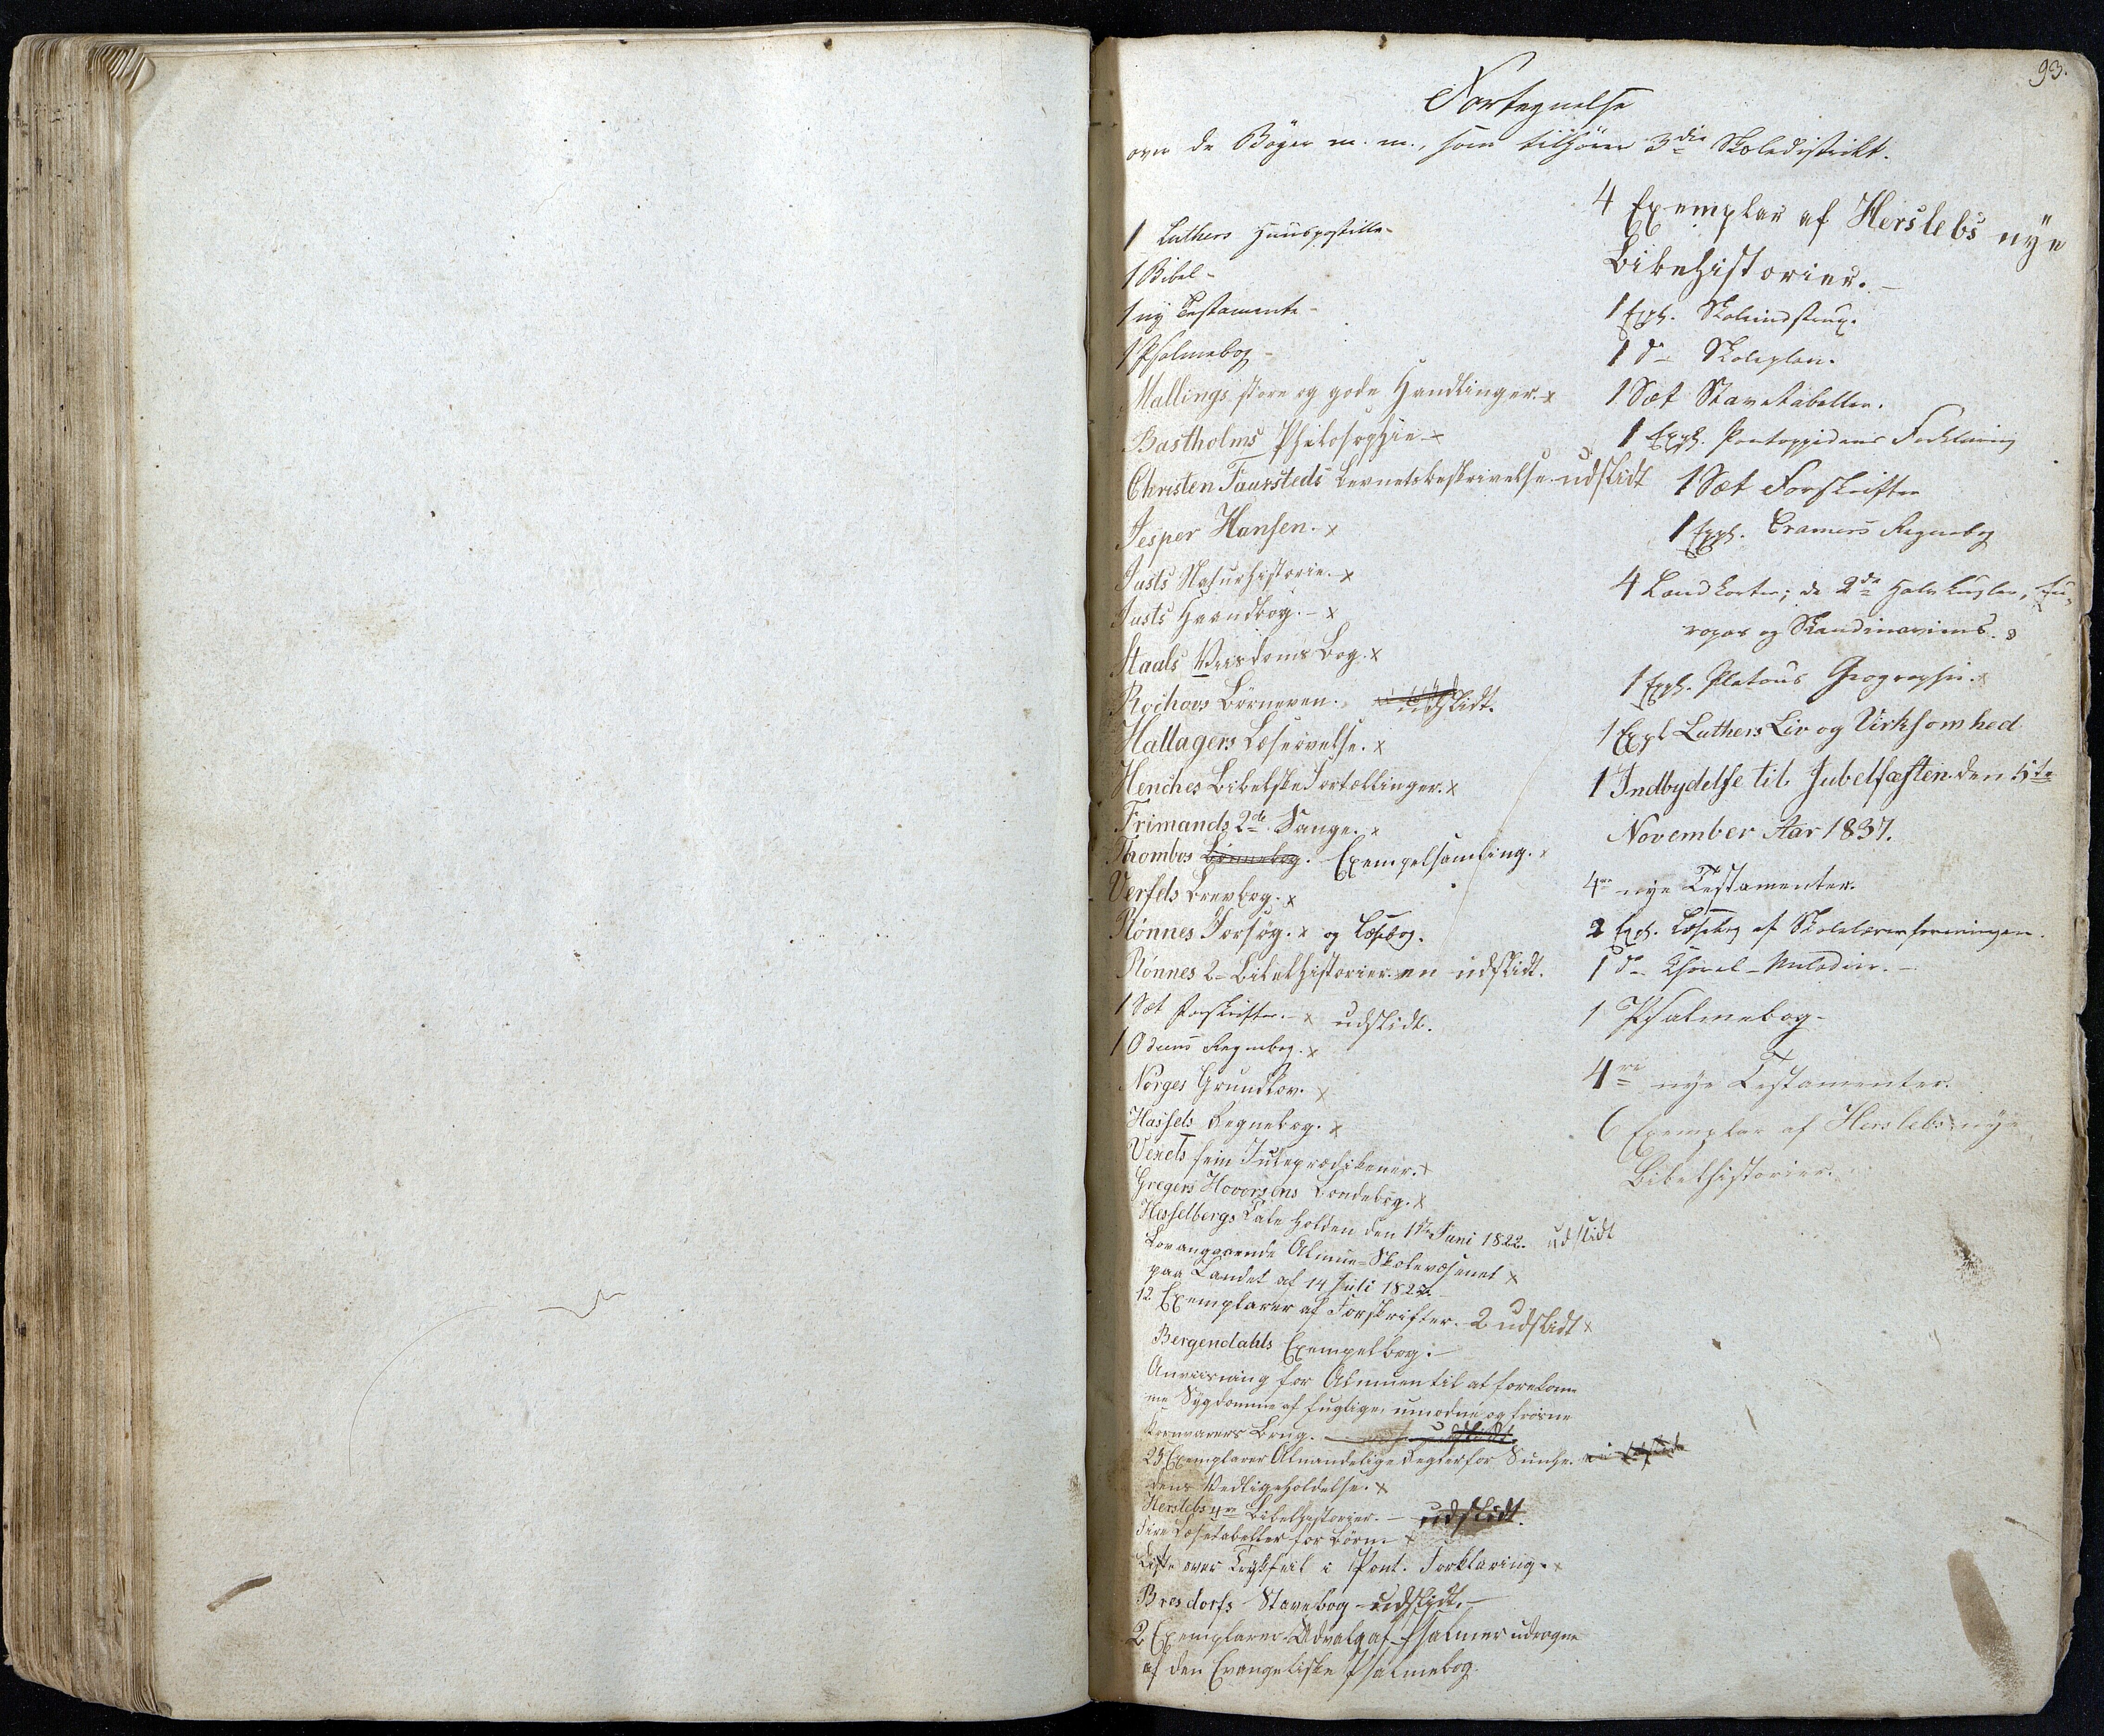 93.
Fortegnelse
over de Bøger m. m., som tilhører 3die Skoledistrikt.
1 Luthers Huuspostille -
1 Bibel -
1 ny Testamente -
1 Psalmebog -
Mallings store og gode Handlinger. x
Bastholms Philosophie - x
Christen Taarsteds Levnetsbeskrivelse udslidt
Jesper Hansen. x
Justs Naturhistorie. x
Justs Haandbog. - x
Staals Viisdoms Bog. x
Rochows Børneven. udslidt.
Hallagers Læseøvelse. x
Henches Bibelske Fortællinger. x
Frimands 2de Sange. x
Thombos Exempelsamling. x
Verfels Brevbog. x
Rønnes Forsøg. x og Læsebog.
Rønnes 2 Bibelhistorier. en udslidt.
1 Sæt Forskrifter. - x udslidt.
1 Odums Regnebog. x
Norges Grundlov. x
Hassels Regnebog. x
Venels sein Juleprædikener. x
Gregers Hovorsens Bondebog. x
Hesselbergs Tale holden den 1ste Juni 1822. udslidt
Lov angaaende Almue-Skolevæsenet x
paa Landet af 14 Juli 1827.
12 Exemplarer af Forskrifter. 2 udslidt x
Bergendahls Exempelbog. -
Anviisning for Almuen til at forekom-
me Sygdomme af fugtige, umodne og frosne
Kornvarers Brug.
25 Exemplarer Almindelige Regler for Sunhe-
dens Vedligeholdelse. x
Herslebs 4re Bibelhistorier. - udslidt.
Fire Læsetabeller for Børn x
Liste over Trykfeil i Pont. Forklaring. x
Brosdorfs Stavebog - udslidt. -
2 Exemplarer Udvalg af Psalmer udvagne
af den Evangeliske Psalmebog.
4 Exemplar af Herslebs nye
Bibelhistorier. -
1 Expl. Skoleindstrux.
1 do Skoleplan.
1 Sæt Stavetabeller.
1 Expl. Pontoppidans Forklaring
1 Sæt Forskrifter
1 Expl. Cramers Regnebog
4 Landkorter; de 2de Halvkugler, Eu-
ropas og Skandinaviens.
1 Expl. Platous Geographi. x
1 Expl Luthers Liv og Virksomhed
1 Indbydelse til Jubelfæsten den 5te
November Aar 1837.
4re nye Testamenter.
2 Expl. Læsebog af Skolelærerforeningen.
1 do Choral-Melodier. -
1 Psalmebog -
4re nye Testamenter.
6 Exemplar af Herslebs nye
Bibelhistorier.